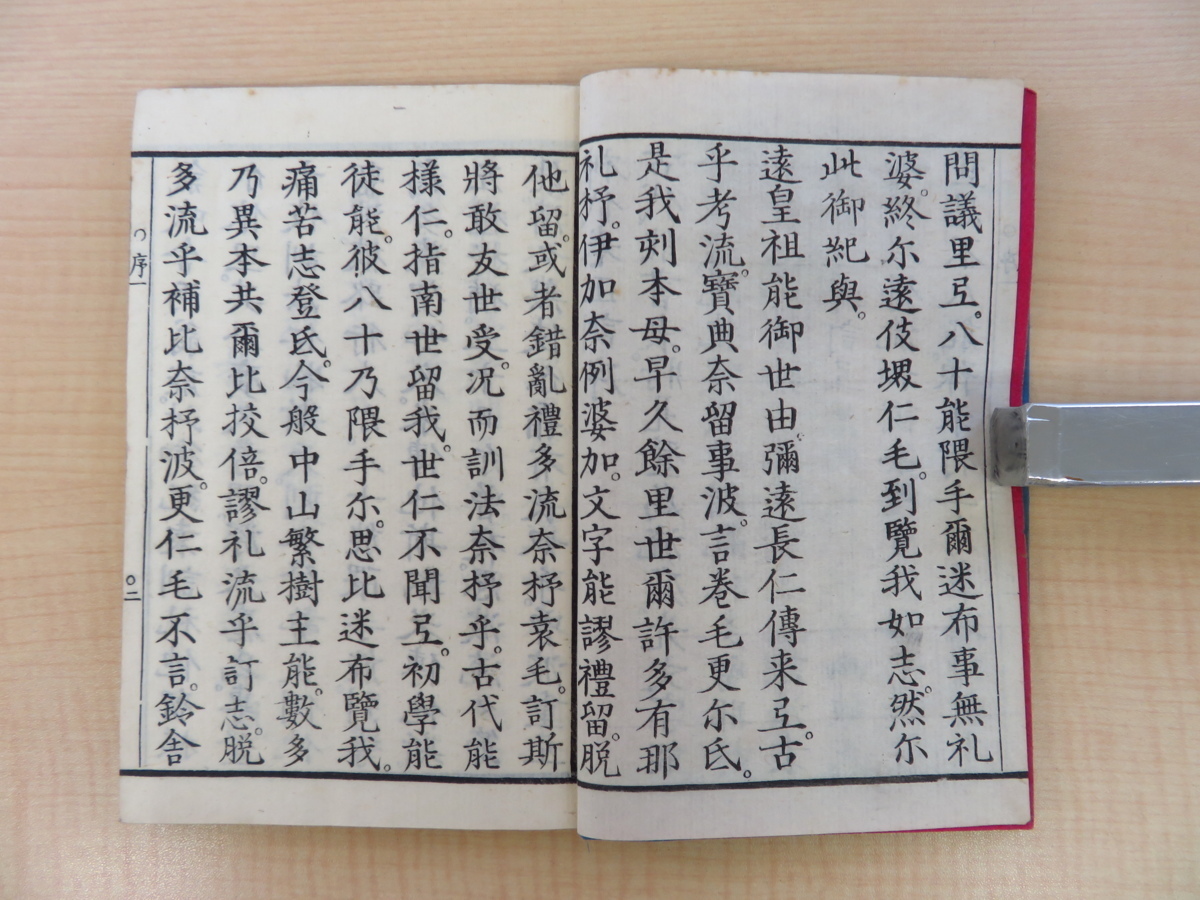 問議里弖。八十能隈手爾迷布事無礼
婆。終尓遠伎堺仁毛。到覽我如志。然尓
此御紀與。
遠皇祖能御世由。彌遠長仁傳来弖。古
乎考流。寶典奈留事波。言巻毛更尓氐。
是我刻本毋。早久餘里世爾許多有那
礼杼。伊加奈例婆加。文字能謬禮留。脱
他留。或者錯亂禮多流奈杼袁毛。訂斯
將敢友世受。况而訓法奈杼乎。古代能
様仁。指南世留我。世仁不聞弖。初學能
徒能。彼八十乃隈手尓。思比迷布覽我。
痛苦志登氐。今般中山繁樹主能。數多
乃異本共爾比挍倍。謬礼流乎訂志。脱
多流乎補比奈杼波。更仁毛不言。鈴舎
序一
二